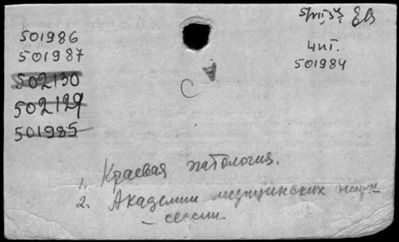 501986
501987
502130
502129
501985
5/VIII 57
чит.
501984
С
1. Краевая патология.
2. Академии медицинских наук
– сессии.